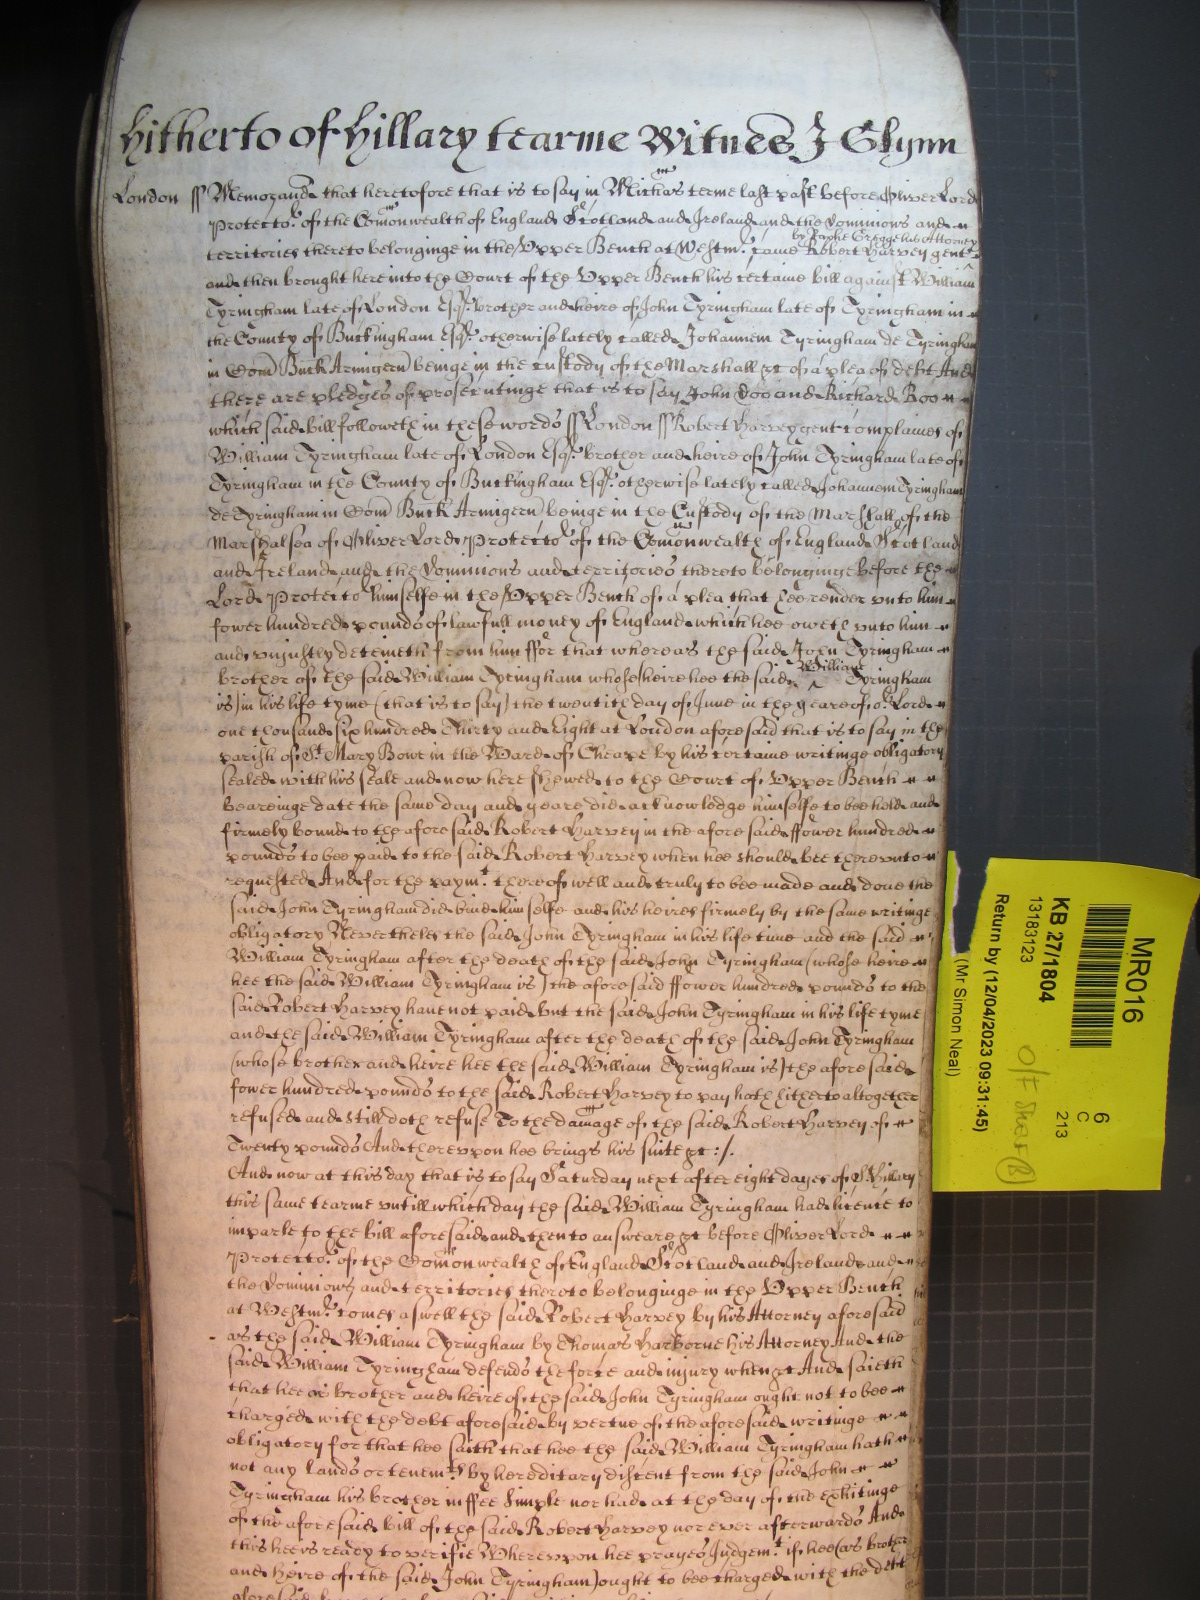 hitherto of hillary tearme Witnes J Glynn
London ss Memorand that heretofore that is to say in Michas terme last past before Oliver Lord
Protector of the Comonwealth of England Scotland and Ireland and the Dominions and
by Raphe Gregge his Attorney
territories thereto belonginge in the Upper Bench at Westmr came Robert Harvey gent
and then brought here into the Court of the Upper Bench his certaine bill against William
Tyringham late of London Esqr brother and heire of John Tyringham late of Tyringham in
the County of Buckingham Esqr otherwise lately called Johannem Tyringham de Tyringham
in Com Buck Armigeru beinge in the custody of the Marshall &c of a plea of debt And
there are pledges of prosecutinge that is to say John Doo and Richard Roo
which said bill followeth in these words ss London ss Robert Harvey gent complaines of
William Tyringham late of London Esqr brother and heire of John Tyringham late of
Tyringham in the County of Buckingham Esqr otherwise lately called Johannem Tyringham
de Tyringham in Com Buck Armigeru beinge in the Custody of the Marshall of the
Marshalsea of Oliver Lord Protector of the Comonwealth of England Scotland
and Ireland and the Dominions and territories thereto belonginge before the
Lord Protector himselfe in the Upper Bench of a plea that hee render unto him
fower hundred pounds of lawfull money of England which hee oweth unto him
and uniustly deteineth from him ffor that whereas the said John Tyringham
William
brother of the said William Tyringham whose heire hee the said Tyringham
is) in his life tyme (that is to say) the twentith day of June in the yeare of or Lord
one thousand six hundred Thirty and Eight at London aforesaid that is to say in the
parish of St Mary Bowe in the Ward of Cheape by his certaine writinge obligatory
sealed with his seale and now here shewed to the Court of Upper Bench
beareinge date the same day and yeare did acknowledge himselfe to bee held and
firmely bound to the aforesaid Robert Harvey in the aforesaid ffower hundred
pounds to bee paid to the said Robert Harvey when hee should bee thereunto
requested And for the paymt thereof well and truly to bee made and done the
said John Tyringham did bind himselfe and his heires firmely by the same writinge
obligatory Nevertheles the said John Tyringham in his life time and the said
William Tyringham after the death of the said John Tyringham (whose heire
hee the said William Tyringham is) the aforesaid ffower hundred pounds to the
said Robert Harvey have not paid but the said John Tyringham in his life tyme
and the said William Tyringham after the death of the said John Tyringham
(whose brother and heire hee the said William Tyringham is) the aforesaid
fower hundred pounds to the said Robert Harvey to pay hath hitherto altogether
refused and still doth refuse To the damage of the said Robert Harvey of
Twenty pounds And thereupon hee brings his suite &c :/.
And now at this day that is to say Saturday next after eight dayes of St Hillary
this same tearme untill which day the said William Tyringham had licence to
imparle to the bill aforesaid and then to answeare &c before Oliver Lord
Protector of the Comonwealth of England Scotland and Ireland and
the Dominions and territories thereto belonginge in the Upper Bench
at Westmr comes aswell the said Robert Harvey by his Attorney aforesaid
as the said William Tyringham by Thomas Harborne his Attorney And the
said William Tyringham defends the force and iniury when &c And saieth
that hee as brother and heire of the said John Tyringham ought not to bee
charged with the debt aforesaid by vertue of the aforesaid writinge
obligatory for that hee saith that hee the said William Tyringham hath
not any lands or tenemts by hereditary discent from the said John
Tyringham his brother in ffee simple nor had at the day of the exhitinge
of the aforesaid bill of the said Robert Harvey nor ever afterwards And
this hee is ready to verifie Whereupon hee prayes Judgemt if hee (as brother
and heire of the said John Tyringham) ought to bee charged with the debt
MR016
6
C
213
KB 27/1804
13183123
Return by (12/04/2023 09:31:45)
(Mr Simon Neal)